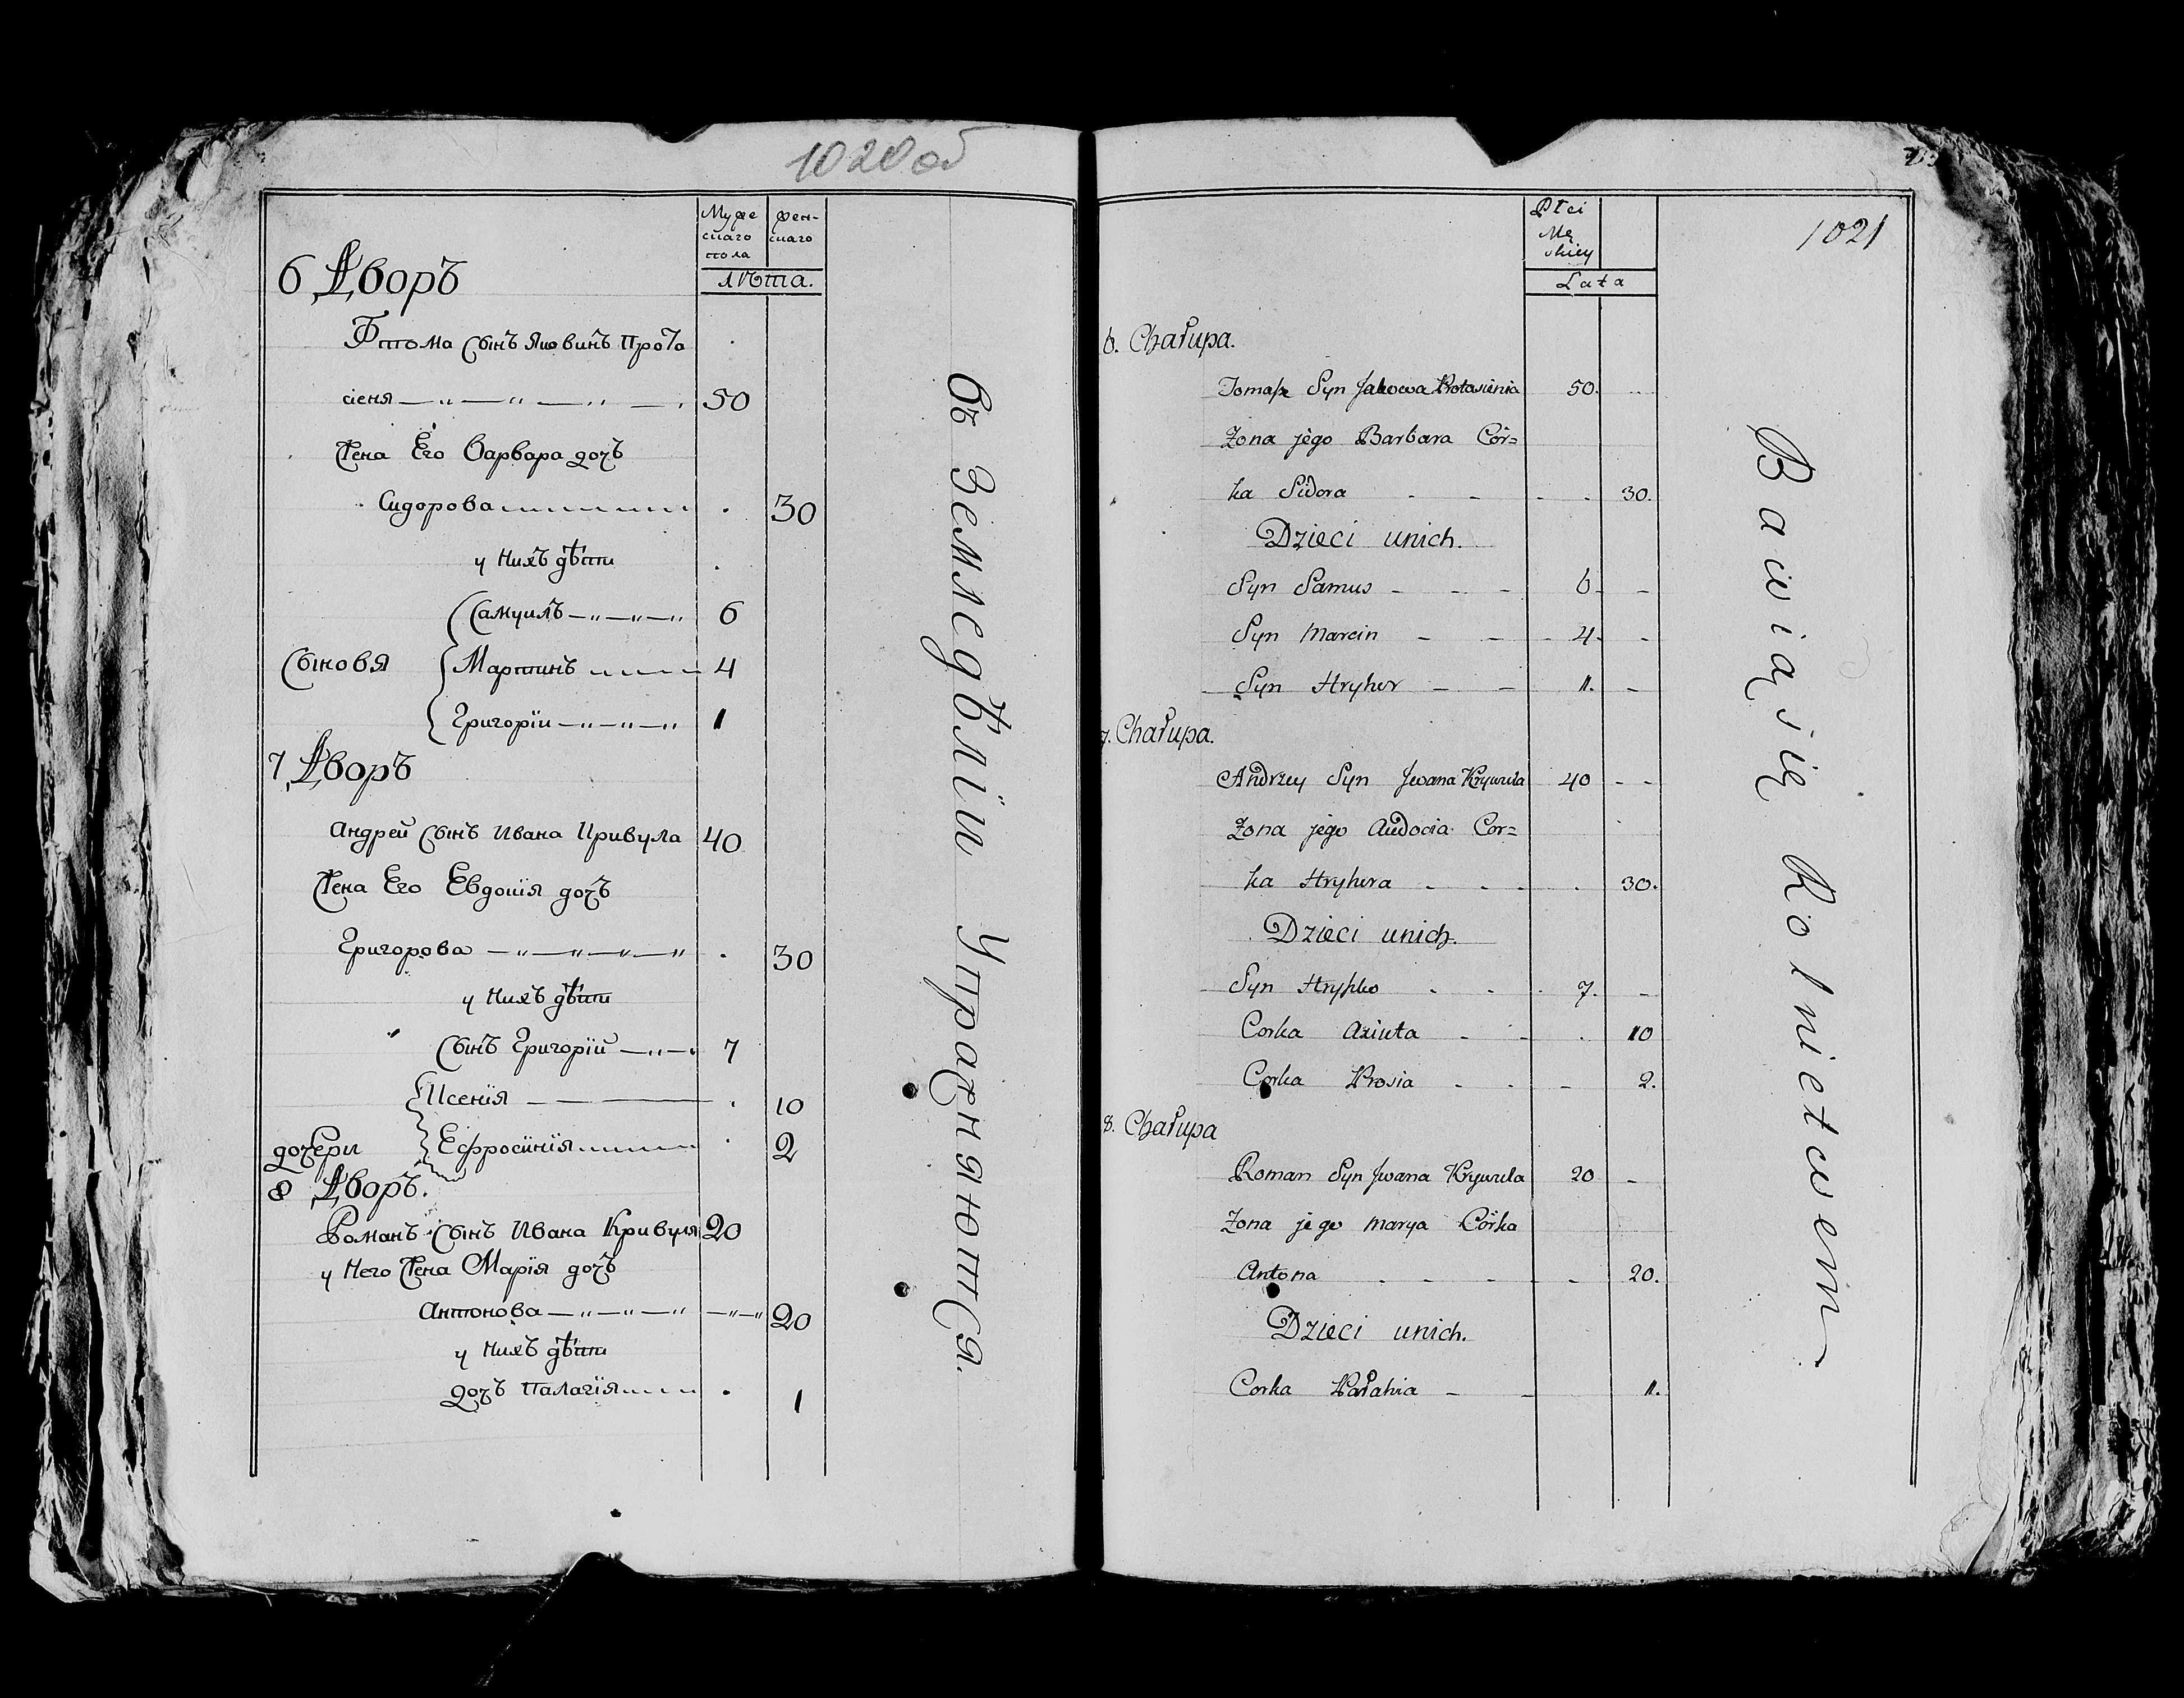 1020 об
Муже
скаго
пола
жен-
скаго
лѣта.
6 Дворъ
Фтома Сынъ Яковинъ Прота
сеня 50
Жена Его Варвара дочъ
Сидорова 30
у Нихъ дѣти
Самуилъ 6
Сыновя Мартинъ 4
Григорїи 1
7 Дворъ
Андрей Сынъ Ивана Кривула 40
Жена Его Евдокїя дочъ
Григорова 30
у Нихъ дѣти
Сынъ Григорїй 7
Ксенїя 10
дочери Ефросинїя 2
8 Дворъ.
Романъ Сынъ Ивана Кривуля 20
у Него Жена Марїя дочъ
Антонова 20
у Нихъ дѣти
Дочъ Палагїя 1
въ Земледѣлїи Упражняются.
1021
Płci
Mę
skiey
Lata
6. Chałupa.
Tomasz Syn Jakowa Protasienia 50.
Zona jego Barbara Cór=
ka Sidora 30.
Dzieci unich.
Syn Samus 6
Syn Marcin 4
Syn Hryhor 1.
7. Chałupa.
Andrzey Syn Jwana Krywula 40
Zona jego Audocia Cor=
ka Hryhora 30.
Dzieci unich.
Syn Hryszko 7.
Corka Axiuta 10
Corka Prosia 2.
8. Chałupa
Roman Syn Jwana Krywula 20
Zona jego Marya Córka
Antona 20.
Dzieci unich.
Corka Pałahia 1.
Bawią się Rolnictwem